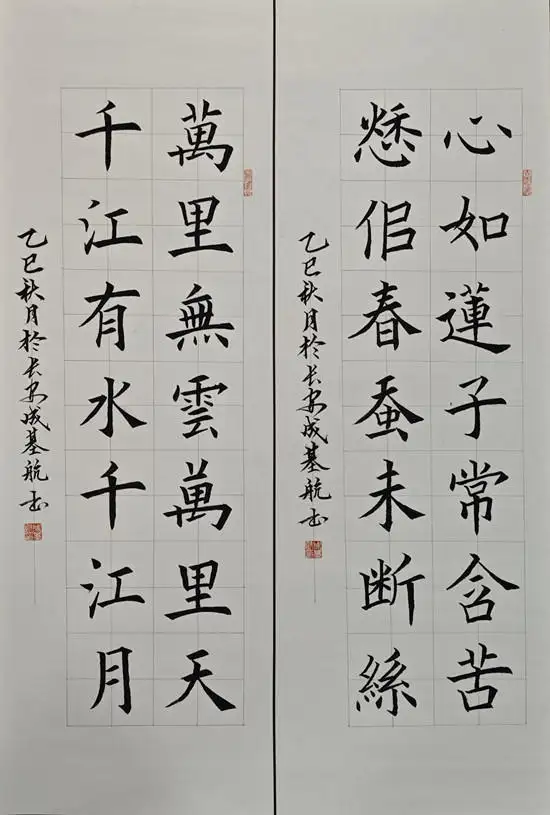 心如蓮子常含苦
愁佀春蚕未断絲
乙巳秋月於长安成基航书
萬里無雲萬里天
千江有水千江月
乙巳秋月於长安成基航书